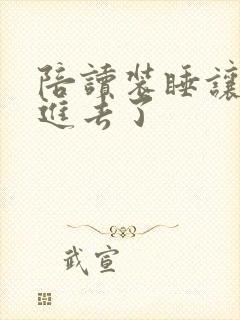 陪讀裝睡讓
進去了
武宣